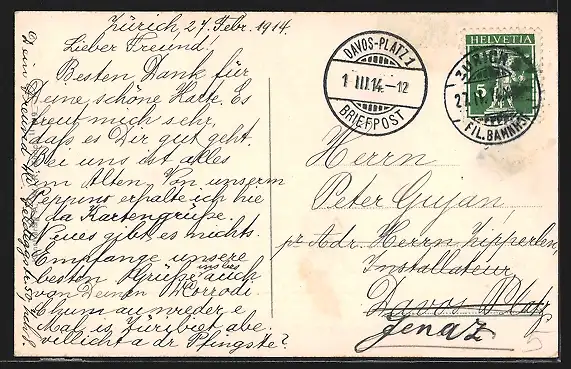 Zürich, 27 Febr. 1914.
Lieber Freund!
Besten Dank für
Deine schöne Karte. Es
freut mich sehr,
dass es Dir gut geht.
Bei uns ist alles
im Alten. Von unserm
Peppino erhalte ich hie
& da Kartengrüße.
Neues gibt es nichts.
Empfange unsere
besten Grüße, auch
von Deinen Korrodi
Chum au wieder e
Mal is Züribiet, abe
villicht a dr Pfingste?
DAVOS-PLATZ 1
1 III.14.-12
BRIEFPOST
HELVETIA
5
ZÜRICH
FIL. BAHNHOF
Herrn
Peter Gujan,
pr Adr. Herrn Zipperlen,
Installateur
Davos Platz
Jenaz